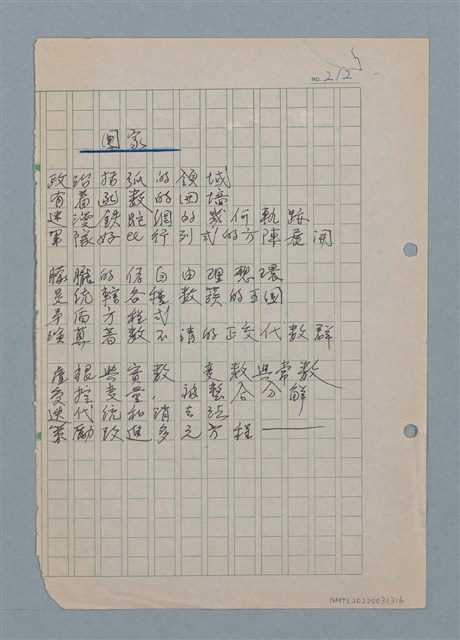 NO. 2/2
國家
政治括弧的領域
有着函數的圍墻
迷漫鐵蹄網的幾何軌跡
軍隊好比行列式的方陣展開
朦朧的偽自由理想環
是統轄各種數領的王國
矛盾方程式
演算着數不清的正交代數群
虛根與實數 變數與常數
受控變量 被整合分解
迭代統和消去法
策勵改進多元方程——
NMTL20220031316